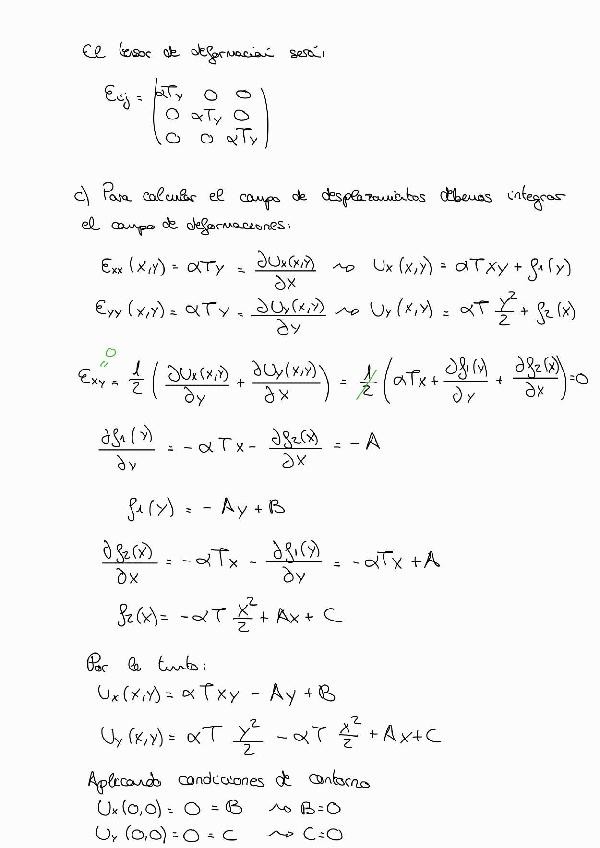 El tensor de deformación será:
εij = (αTy 0 0
0 αTy 0
0 0 αTy)
c) Para calcular el campo de desplazamientos debemos integrar
el campo de deformaciones:
εxx (x,y) = αTy = ∂Ux(x,y)/∂x ⇝ Ux (x,y) = αTxy + f1(y)
εyy (x,y) = αTy = ∂Uy(x,y)/∂y ⇝ Uy (x,y) = αT y²/2 + f2(x)
0
"
εxy = 1/2 (∂Ux(x,y)/∂y + ∂Uy(x,y)/∂x) = 1/2 (αTx + ∂f1(y)/∂y + ∂f2(x)/∂x) = 0
∂f1(y)/∂y = -αTx - ∂f2(x)/∂x = -A
f1(y) = -Ay + B
∂f2(x)/∂x = -αTx - ∂f1(y)/∂y = -αTx + A
f2(x) = -αT x²/2 + Ax + C
Por lo tanto:
Ux(x,y) = αTxy - Ay + B
Uy(x,y) = αT y²/2 - αT x²/2 + Ax + C
Aplicando condiciones de contorno
Ux(0,0) = 0 = B ⇝ B=0
Uy(0,0) = 0 = C ⇝ C=0